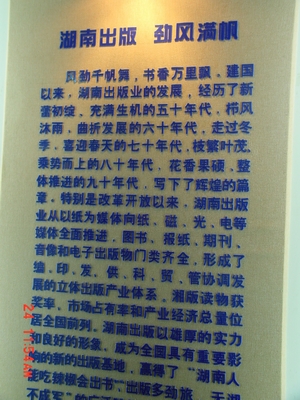 湖南出版 劲风满帆
风劲千帆舞，书香万里飘。建国
以来，湖南出版业的发展，经历了新
蕾初绽、充满生机的五十年代，栉风
沐雨、曲折发展的六十年代，走过冬
季、喜迎春天的七十年代，枝繁叶茂、
乘势而上的八十年代，花香果硕、整
体推进的九十年代，写下了辉煌的篇
章。特别是改革开放以来，湖南出版
业从以纸为媒体向纸、磁、光、电等
媒体全面推进，图书、报纸、期刊、
音像和电子出版物门类齐全，形成了
编、印、发、供、科、贸、管协调发
展的立体出版产业体系。湘版读物获
奖率、市场占有率和产业经济总量位
居全国前列。湖南出版以雄厚的实力
和良好的形象，成为全国具有重要影
响的新的出版基地，赢得了“湖南人
能吃辣椒会出书”“出版多劲旅，无湖
不成军”